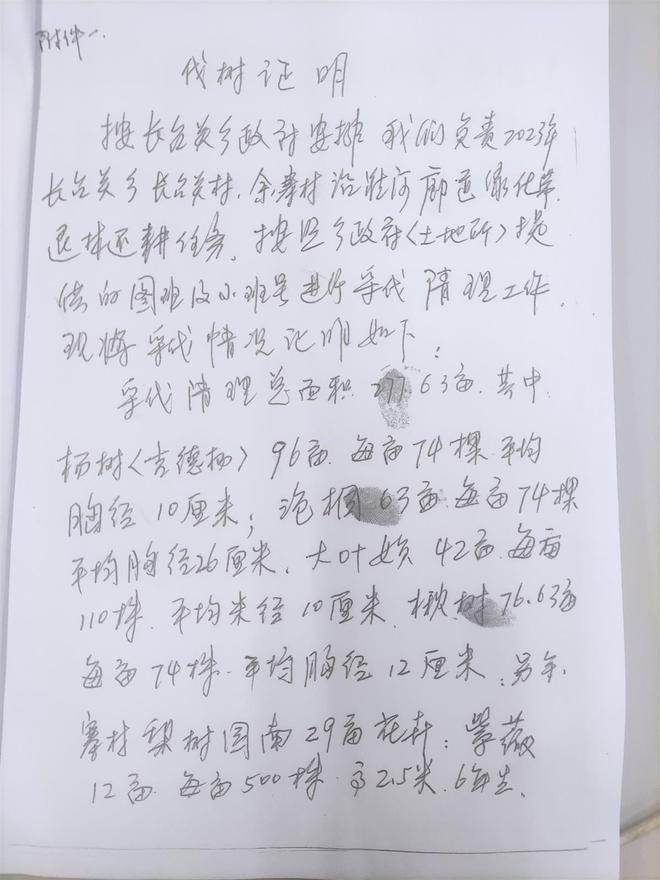 附件一.
伐树证明
按长台关乡政府安排 我们负责2023年
长台关乡长台关村、余寨村沿淮河廊道绿化等
退林还耕任务,按照乡政府<土地所>提
供的图班及小班号进行采伐 隋理工作,
现将采伐情况证明如下:
采伐隋理总面积277.63亩.其中
杨树<吉德杨>96亩.每亩74棵.平均
胸径10厘米;泡桐63亩.每亩74棵
平均胸径26厘米、大叶女贞42亩.每亩
110株.平均米径10厘米.楸树76.63亩
每亩74株.平均胸径12厘米;另余
寨村梨树园南29亩花卉:紫薇
12亩.每亩500株.高2.5米.6年生、